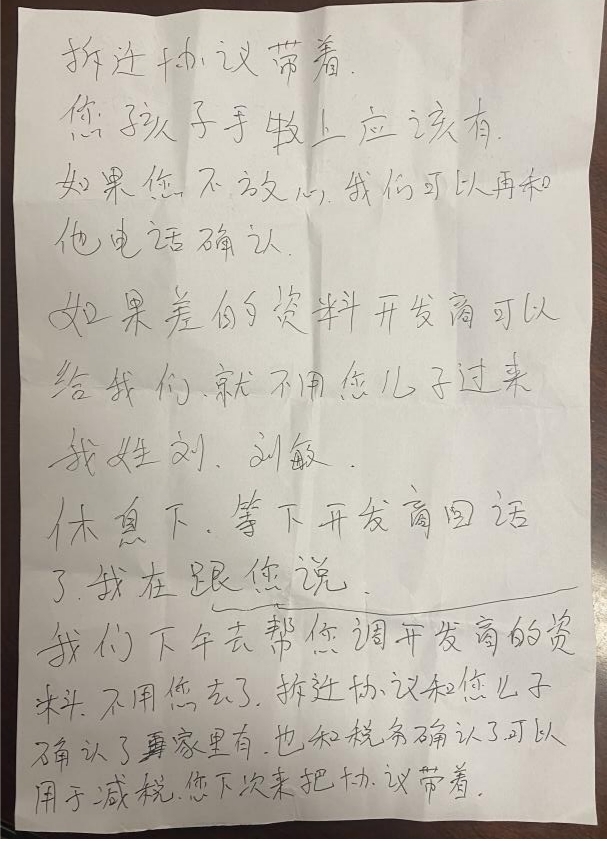 拆迁协议带着.
您孩子手牧上应该有.
如果您不放心,我们可以再和
他电话确认.
如果差的资料开发商可以
给我们.就不用您儿子过来
我姓刘.刘敏.
休息下.等下开发商回话
了.我在跟您说.
我们下午去帮您调开发商的资
料.不用您去了.拆迁协议和您儿子
确认了家里有.也和税务确认了.可以
用于减税.您下次来把协议带着.